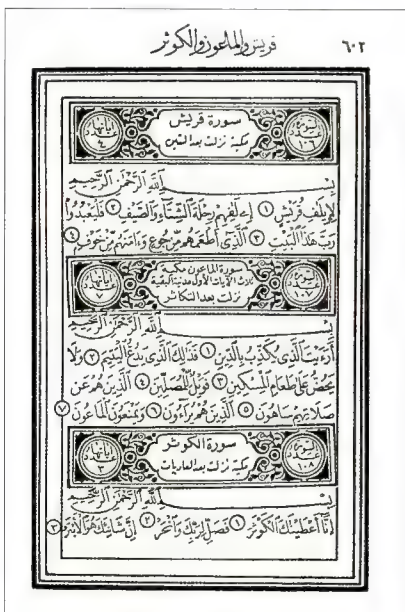 ٦٠٢ قريش والماعون والكوثر
سورة عدد ١٠٦
سورة قريش
مكية نزلت بعد التين
آياتها عدد ٤
بِسْمِ ٱللَّهِ ٱلرَّحْمَٰنِ ٱلرَّحِيمِ
لِإِيلَٰفِ قُرَيْشٍ ١ إِۦلَٰفِهِمْ رِحْلَةَ ٱلشِّتَآءِ وَٱلصَّيْفِ ٢ فَلْيَعْبُدُوا۟
رَبَّ هَٰذَا ٱلْبَيْتِ ٣ ٱلَّذِىٓ أَطْعَمَهُم مِّن جُوعٍ وَءَامَنَهُم مِّنْ خَوْفٍۭ ٤
سورة عدد ١٠٧
سورة الماعون مكية
ثلاث الآيات الأول مدنية البقية
نزلت بعد التكاثر
آياتها عدد ٧
بِسْمِ ٱللَّهِ ٱلرَّحْمَٰنِ ٱلرَّحِيمِ
أَرَءَيْتَ ٱلَّذِى يُكَذِّبُ بِٱلدِّينِ ١ فَذَٰلِكَ ٱلَّذِى يَدُعُّ ٱلْيَتِيمَ ٢ وَلَا
يَحُضُّ عَلَىٰ طَعَامِ ٱلْمِسْكِينِ ٣ فَوَيْلٌ لِّلْمُصَلِّينَ ٤ ٱلَّذِينَ هُمْ عَن
صَلَاتِهِمْ سَاهُونَ ٥ ٱلَّذِينَ هُمْ يُرَآءُونَ ٦ وَيَمْنَعُونَ ٱلْمَاعُونَ ٧
سورة عدد ١٠٨
سورة الكوثر
مكية نزلت بعد العاديات
آياتها عدد ٣
بِسْمِ ٱللَّهِ ٱلرَّحْمَٰنِ ٱلرَّحِيمِ
إِنَّآ أَعْطَيْنَٰكَ ٱلْكَوْثَرَ ١ فَصَلِّ لِرَبِّكَ وَٱنْحَرْ ٢ إِنَّ شَانِئَكَ هُوَ ٱلْأَبْتَرُ ٣